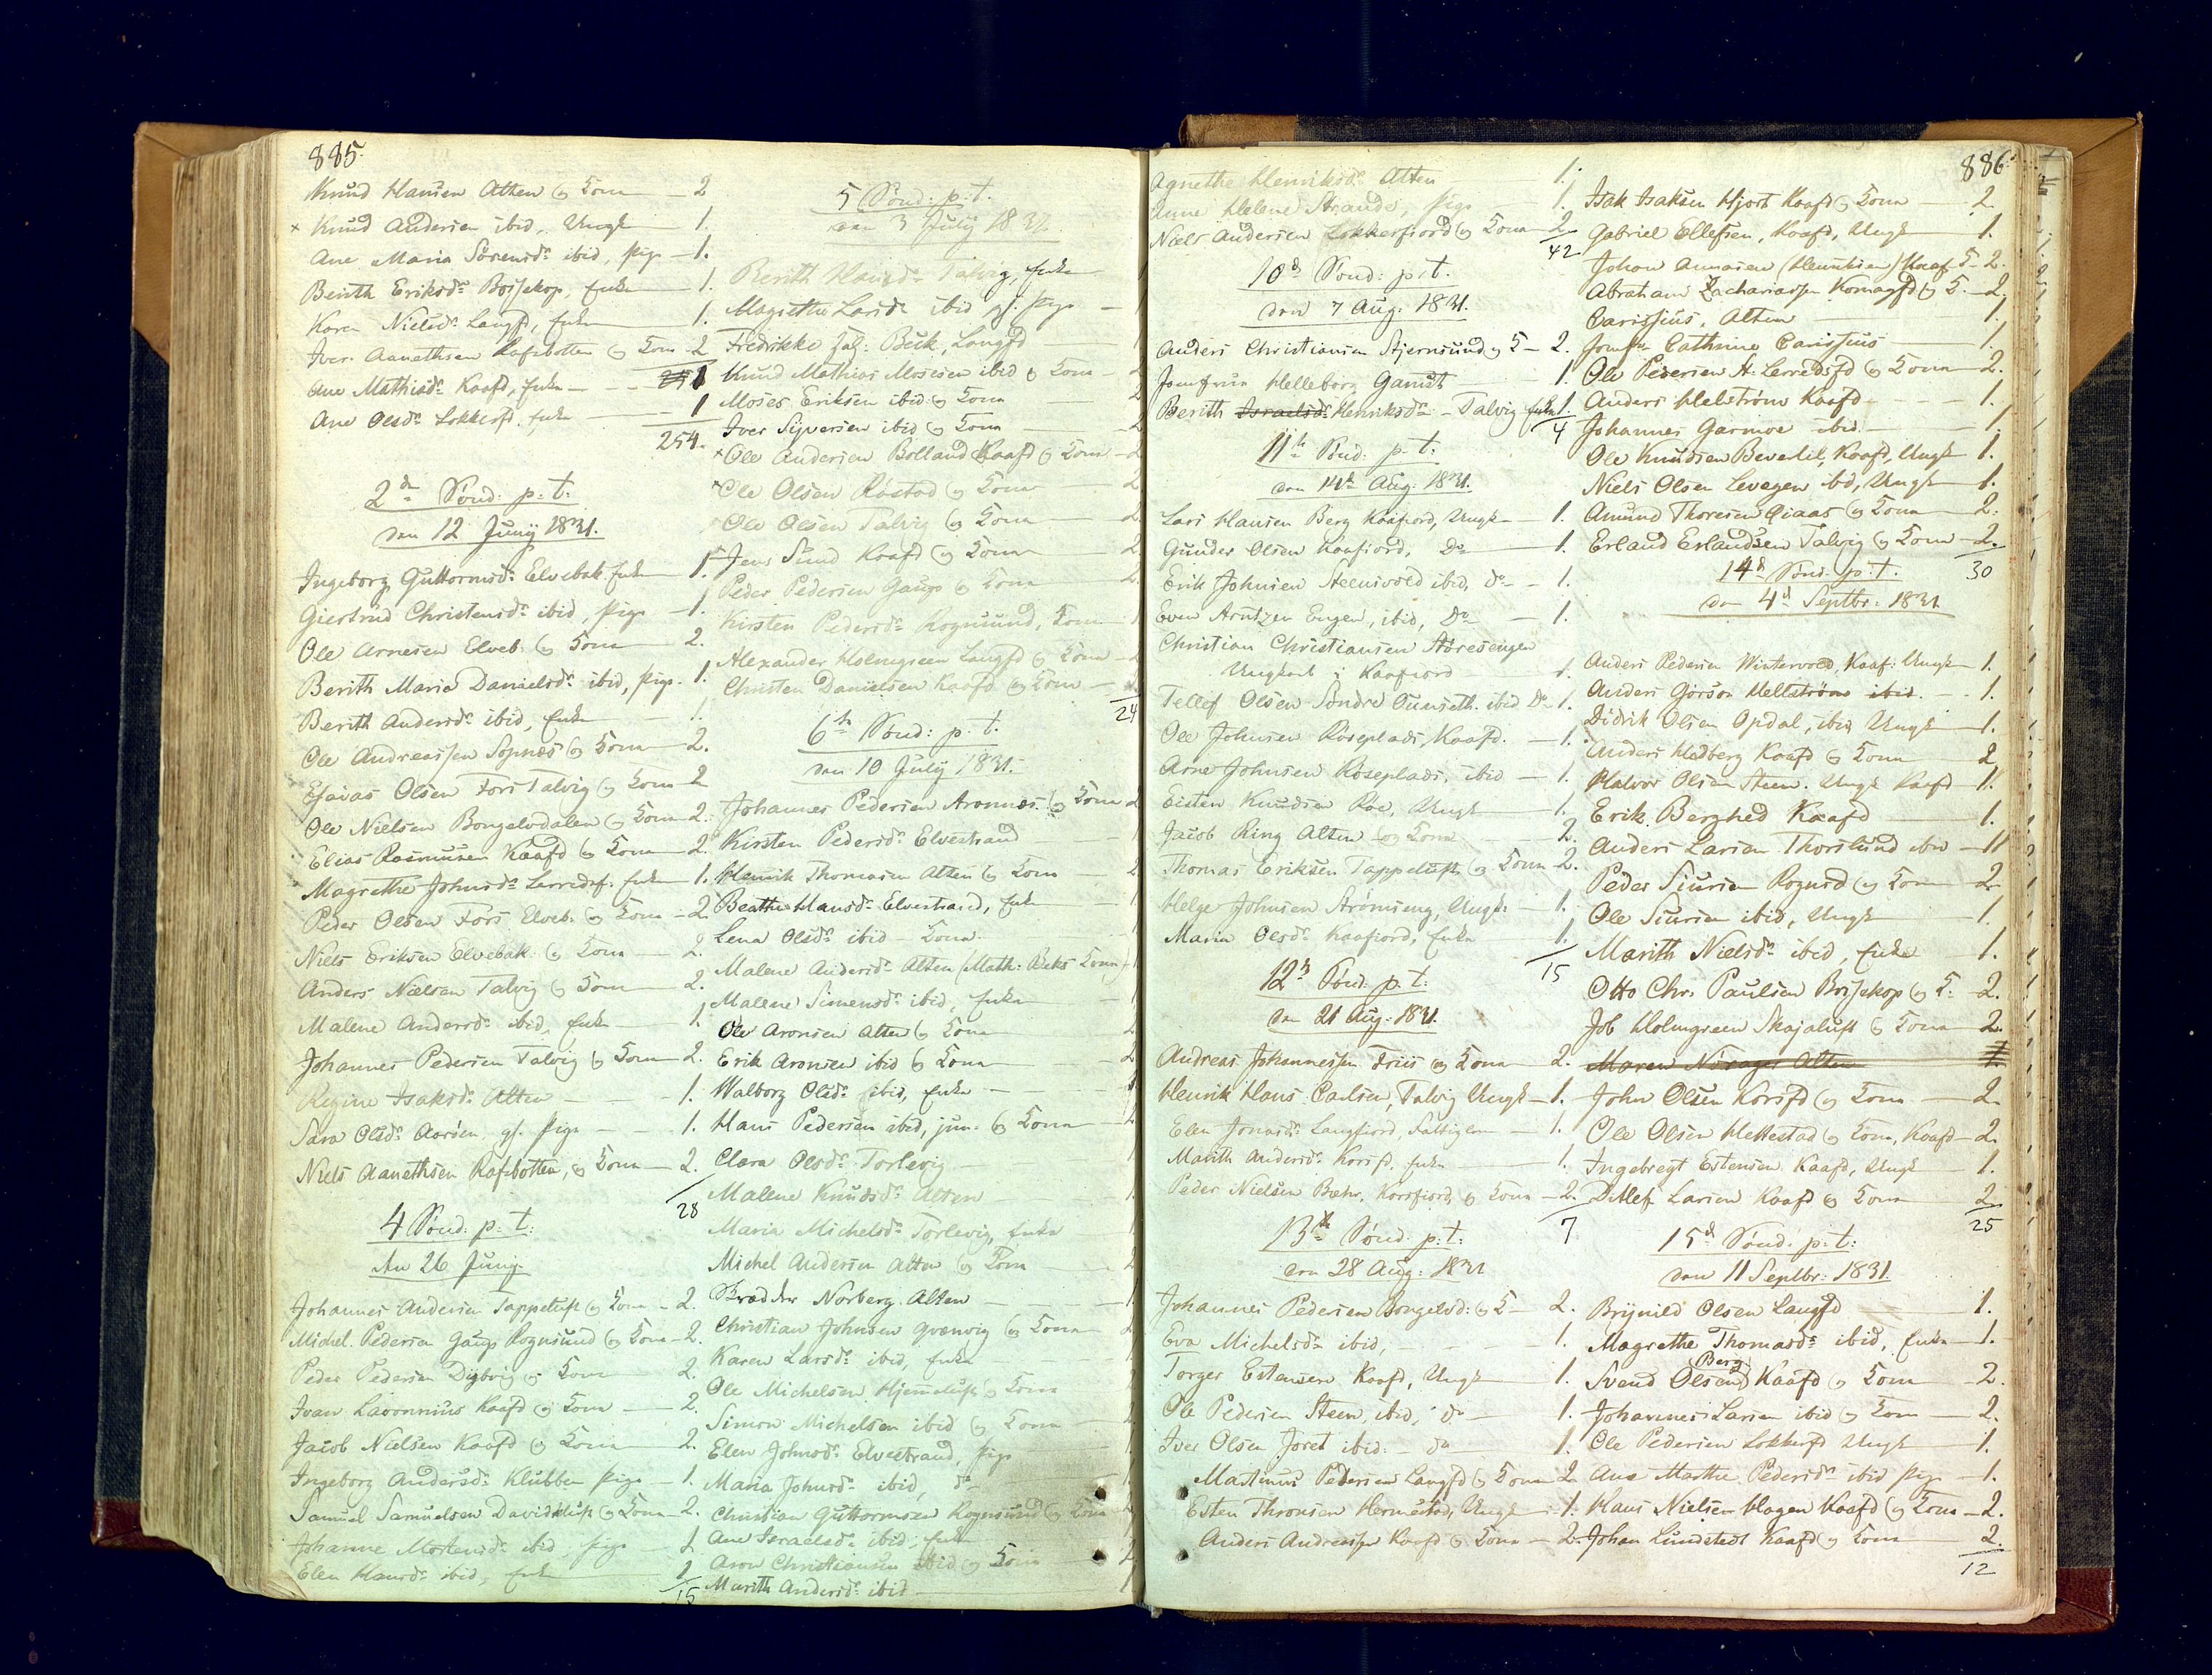 885.
Knud Hansen Alten og Kona — 2
× Knud Andersen ibid, Ungk — 1.
Ane Maria Sörensdr ibid, pige — 1.
Berith Eriksdr Bossekop, Enke — 1.
Karen Nielsdr Langfd, Enke — 1.
Iver Aanethsen Rafsbotten og Kona — 2
Ane Mathisdr Kaafd, Enke — 1
Ane Olsdr Lokkerfd, Enke — 1
254.
2den Sönd: p: t:
den 12 Junij 1831.
Ingeborg Guttormsdr Elvebak Enke — 1.
Giertrud Christensdr ibid, pige — 1.
Ole Arnesen Elveb: og Kona — 2.
Berith Maria Danielsdr ibid, pige — 1.
Berith Andersdr ibid, Enke — 1.
Ole Andreassen Sopnæs og Kona — 2.
Esaias Olsen Fors Talvig og Kona — 2
Ole Nielsen Bongelvdalen og Kona — 2.
Elias Rasmusen Kaafd og Kona — 2.
Magrethe Johnsdr Lerredsf. Enke — 1.
Peder Olsen Fors Elveb: og Kona — 2
Niels Eriksen Elvebak og Kona — 2.
Anders Nielsen Talvig og Kona — 2.
Malene Andersdr ibid, Enke — 1.
Johannes Pedersen Talvig og Kona — 2.
Regine Isaksdr Alten — 1.
Sara Olsdr Aaröen, gl. pige — 1.
Niels Aanethsen Rafsbotten, og Kona — 2.
28
4 Sönd: p: t:
den 26 Junij
Johannes Andersen Tappeluft og Kona — 2.
Michel Pedersen Gaup Rognsund og Kona — 2.
Peder Pedersen Dybvig og Kona — 2.
Ivan Lavonnius Kaafd og Kona — 2.
Jacob Nielsen Kaafd og Kona — 2.
Ingeborg Andersdr Klubben pige — 1.
Samuel Samuelsen Davidsluft og Kona — 2.
Johanne Mortensdr ibid, pige — 1
Elen Hansdr ibid, Enke — 1
15
5 Sönd: p: t.
den 3 Julij 1831.
Berith Hansdr Talvig, Enke — 1
Magrethe Larsdr ibid gl. pige — 1
Fredrikke sal: Beck, Langfd — 1
Knud Mathias Mosesen ibid og Kona — 2
Moses Eriksen ibid og Kona — 2
Iver Syversen ibid og Kona — 2
× Ole Andersen Bolland Kaafd og Kona — 2
× Ole Olsen Röstad og Kona — 2
Ole Olsen Talvig og Kona — 2.
Jens Sund Kaafd og Kona — 2.
Peder Pedersen Gaup og Kona — 2.
Kirsten Pedersdr Rognsund, Kona — 1
Alexander Holmgreen Langfd og Kona — 2
Christen Danielsen Kaafd og Kona — 2
24
6te Sönd: p. t.
den 10 Julij 1831.
Johannes Pedersen Aronnæs og Kona — 2
Kirsten Pedersdr Elvestrand — 1
Henrik Thomasen Alten og Kona — 2
Beathe Hansdr Elvestrand, Enke — 1
Lena Olsdr ibid — Kona — 1
Malene Andersdr Alten (Math: Beks Kona) — 1
Malene Simensdr ibid, Enke — 1
Ole Aronsen Alten og Kona — 2
Erik Aronsen ibid og Kona — 2
Walborg Olsdr ibid, Enke — 1
Hans Pedersen ibid, jun. og Kona — 2
Clara Olsdr Torlevig — 1
Malene Knudsdr Alten — 1.
Maria Michelsdr Torlevig, Enke — 1
Michel Andersen Alten og Kona — 2
Skrædder Norberg Alten — 1
Christian Johnsen Qvænvig og Kona — 2
Karen Larsdr ibid, Enke — 1
Ole Michelsen Hjemmeluft og Kona — 2
Simon Michelsen ibid og Kona — 2
Elen Johnsdr Elvestrand, pige — 1
Maria Johnsdr ibid, do — 1
Christian Guttormsen Rognsund og Kona — 2
Ane Israelsdr ibid, Enke — 1
Aron Christiansen ibid og Kona — 2
Marith Andersdr ibid — 1
886
Agnethe Henriksdr Alten — 1.
Anne Helene Strand, pige — 1.
Niels Andersen Lokkerfiord og Kona — 2.
42
10de Sönd: p: t.
den 7 Aug: 1831.
Anders Christiansen Stjernsund og K — 2.
Jomfrue Helleborg Gamst — 1.
Berith Israelsdr Henriksdr Talvig Enke 1.
4
11te Sönd: p. t:
den 14de Aug: 1831.
Lars Hansen Berg Kaafiord, Ungk — 1.
Gunder Olsen Kaafiord, Do — 1.
Erik Johnsen Steensvold ibid, do — 1.
Even Arntzen Engen, ibid, Do — 1.
Christian Christiansen Störesengen
Ungkarl i Kaafiord — 1.
Tellef Olsen Söndre Ounseth ibid Do 1.
Ole Johnsen Röseplads, Kaafd. — 1.
Arne Johnsen Röseplads, ibid — 1.
Eisten Knudsen Röe, Ungk — 1.
Jacob Ring Alten og Kona — 2.
Thomas Eriksen Tappeluft og Kona — 2.
Helge Johnsen Strömseng, Ungk: — 1.
Maria Olsdr Kaafiord, Enke — 1.
15
12te Sönd: p. t:
den 21 Aug: 1831.
Andreas Johannessen Friis og Kona — 2.
Henrik Hans Carlsen, Talvig Ungk — 1.
Elen Jonasdr Langfiord, Fattiglem — 1.
Marith Andersdr Korsfd. Enke — 1.
Peder Nielsen Bæhr, Korsfiord, og Kona — 2.
7
13de Sönd: p: t:
den 28 Aug: 1831
Johannes Pedersen Bongelvd: og K — 2.
Eva Michelsdr ibid, — 1.
Torger Estensen Kaafd, Ungk — 1.
Ole Pedersen Steen, ibid, do — 1.
Iver Olsen Joret ibid: — do — 1.
Martinus Pedersen Langfd og Kona — 2
Esten Thronsen Hernæstad, Ungk — 1.
Anders Andreassen Kaafd og Kona — 2.
Isak Isaksen Hjort Kaafd og Kona — 2
Gabriel Ellefsen, Kaafd, Ungk — 1.
Johan Annasen (Henriksen) Kaaf. K — 2.
Abraham Zachariassen Komagfd og K. — 2.
Carissius, Alten — 1.
Jomfr Cathrine Carissius — 1.
Ole Pedersen St: Lerredsfd og Kona — 2.
Anders Helström Kaafd — 1.
Johannes Garmoe ibid — 1.
Ole Knudsen Beverlil, Kaafd, Ungk 1.
Niels Olsen Levegen ibd, Ungk — 1.
Amund Thoresen Qiaas og Kona — 2.
Erland Erlandsen Talvig og Kona — 2.
30
14de Sönd: p: t.
den 4de Septbr: 1831
Anders Pedersen Wintervold, Kaaf: Ungk — 1.
Anders Görson Hellström ibid. — 1.
Didrik Olsen Opdal, ibid, Ungk — 1.
Anders Hadberg Kaafd og Kona — 2
Halvor Olsen Steen. Ungk Kaafd — 1.
Erik Berghed Kaafd — 1.
Anders Larsen Thorslund ibid — 1
Peder Siursen Rognsd og Kona — 2
Ole Siursen ibid, Ungk — 1.
Marith Nielsdr ibid, Enke — 1.
Otto Chr. Paulsen Bossekop og K. — 2.
Job Holmgreen Skajaluft og Kona — 2.
Maren Norager Alten — 1.
John Olsen Korsfd og Kona — 2
Ole Olsen Hettestad og Kona, Kaafd — 2.
Ingebregt Estensen Kaafd, Ungk — 1.
Ditlef Larsen Kaafd og Kona — 2
25
15de Sönd. p: t:
den 11 Septbr: 1831
Brynild Olsen Langfd — 1.
Magrethe Thomasdr ibid, Enke — 1.
Svend Olsen Berg Kaafd og Kona — 2.
Johannes Larsen ibid og Kona — 2.
Ole Pedersen Lokkerfd Ungk — 1.
Ane Marthe Pedersdr ibid pige — 1.
Hans Nielsen Hagen Kaafd og Kona — 2.
Johan Lundstedt Kaafd og Kona — 2.
12